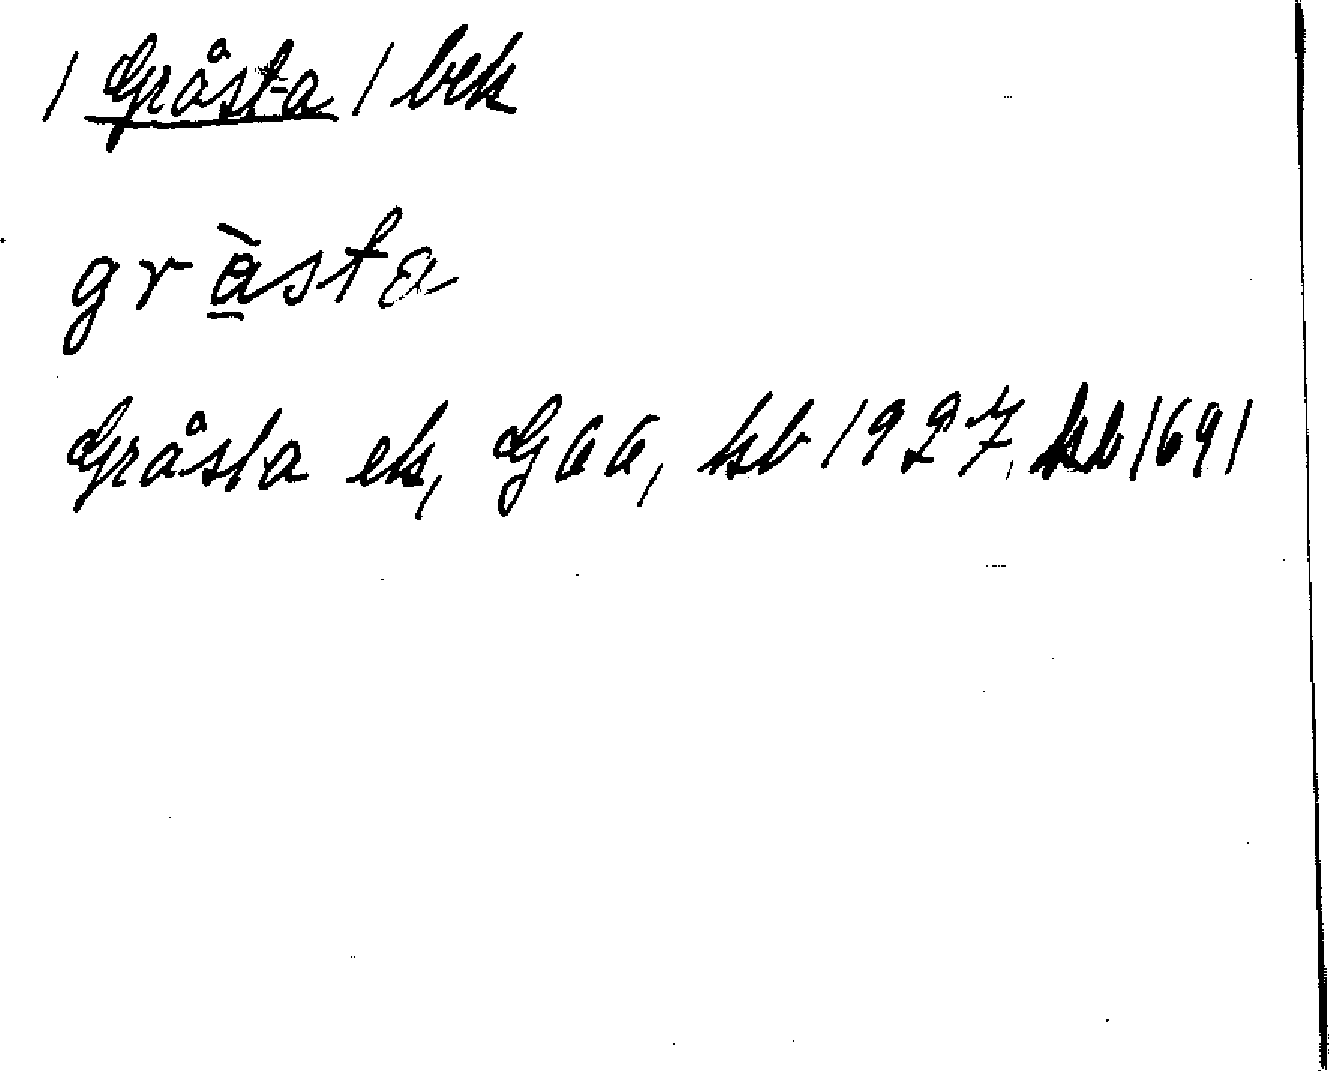 / Gråsta / bek
gr<u>å</u>̀sta
Gråsta ek, G a a, kb 1927, kb 1691